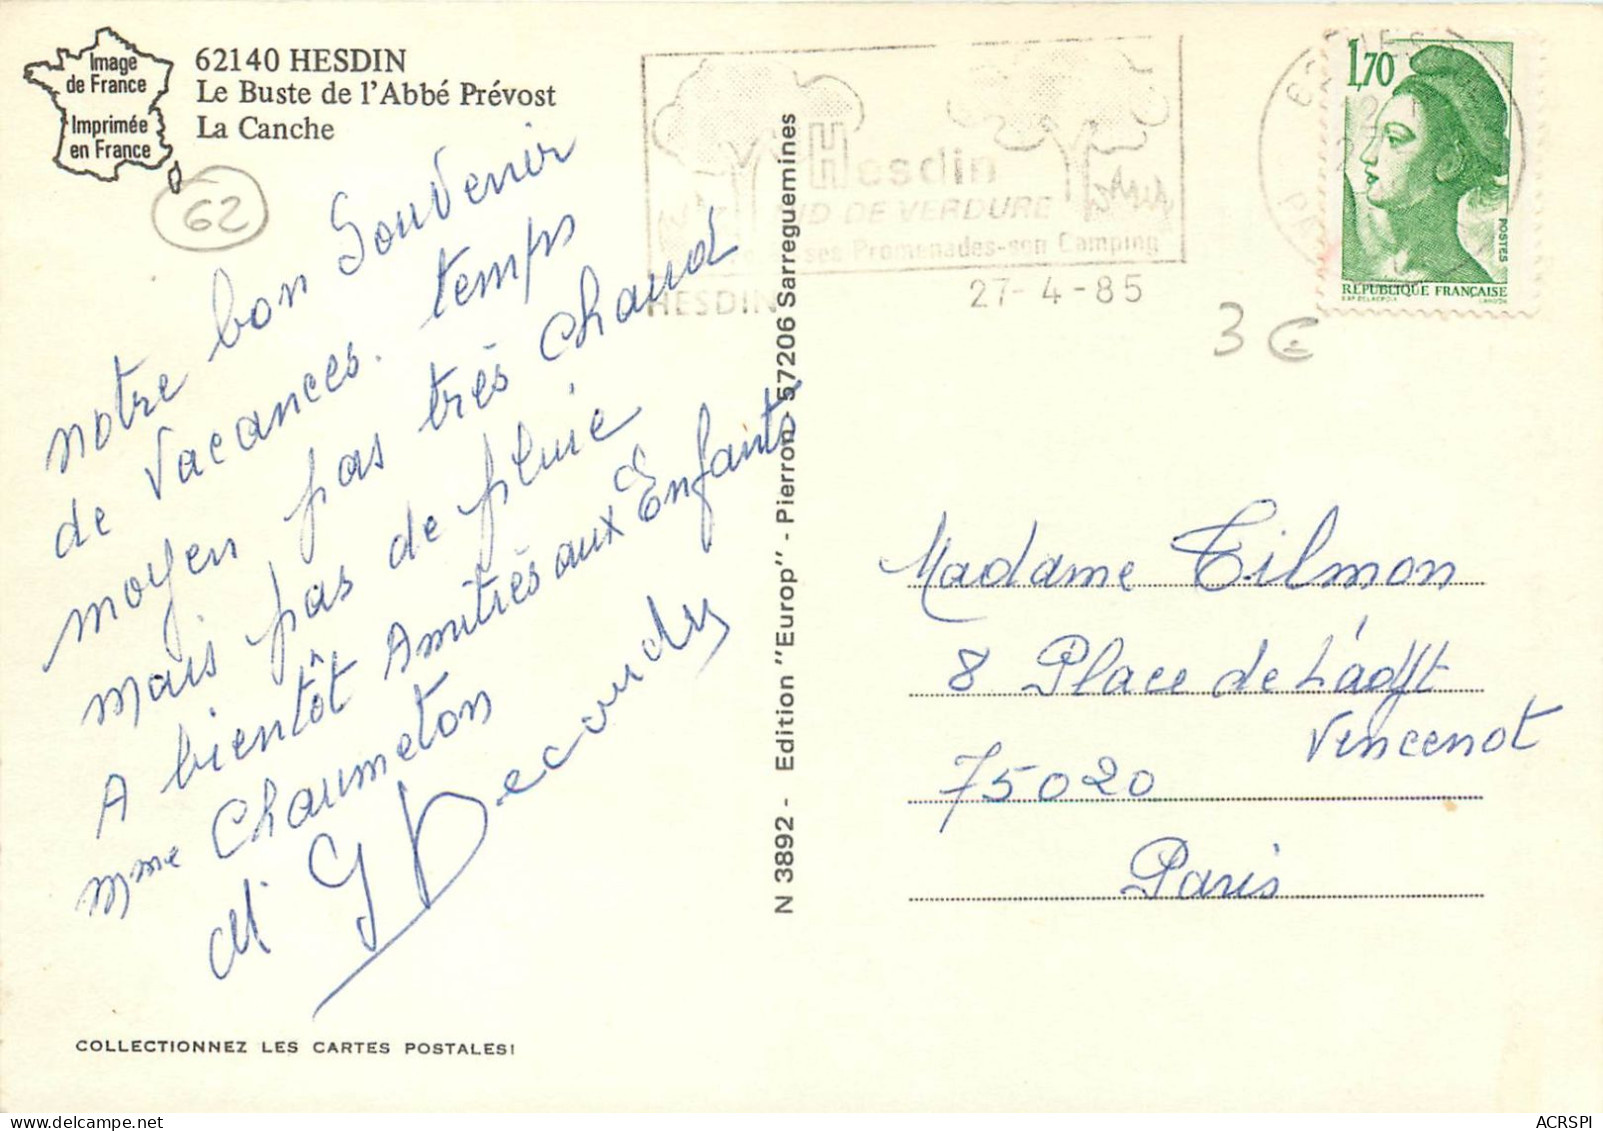 Image
de France
Imprimée
en France
62140 HESDIN
Le Buste de l'Abbé Prévost
La Canche
62
notre bon Souvenir
de Vacances. temps
moyen pas très chaud
mais pas de pluie
A bientôt Amitiés aux Enfants
Mme Chaumeton
et
COLLECTIONNEZ LES CARTES POSTALES!
N 3892 - Edition "Europ" - Pierron - 57206 Sarreguemines
Hesdin
NID DE VERDURE
ses Promenades-son Camping
HESDIN
27-4-85
1,70
POSTES
RÉPUBLIQUE FRANÇAISE
3 €
Madame Tilmon
8 Place de L'adjt
Vincenot
75020
Paris
ACRSPI